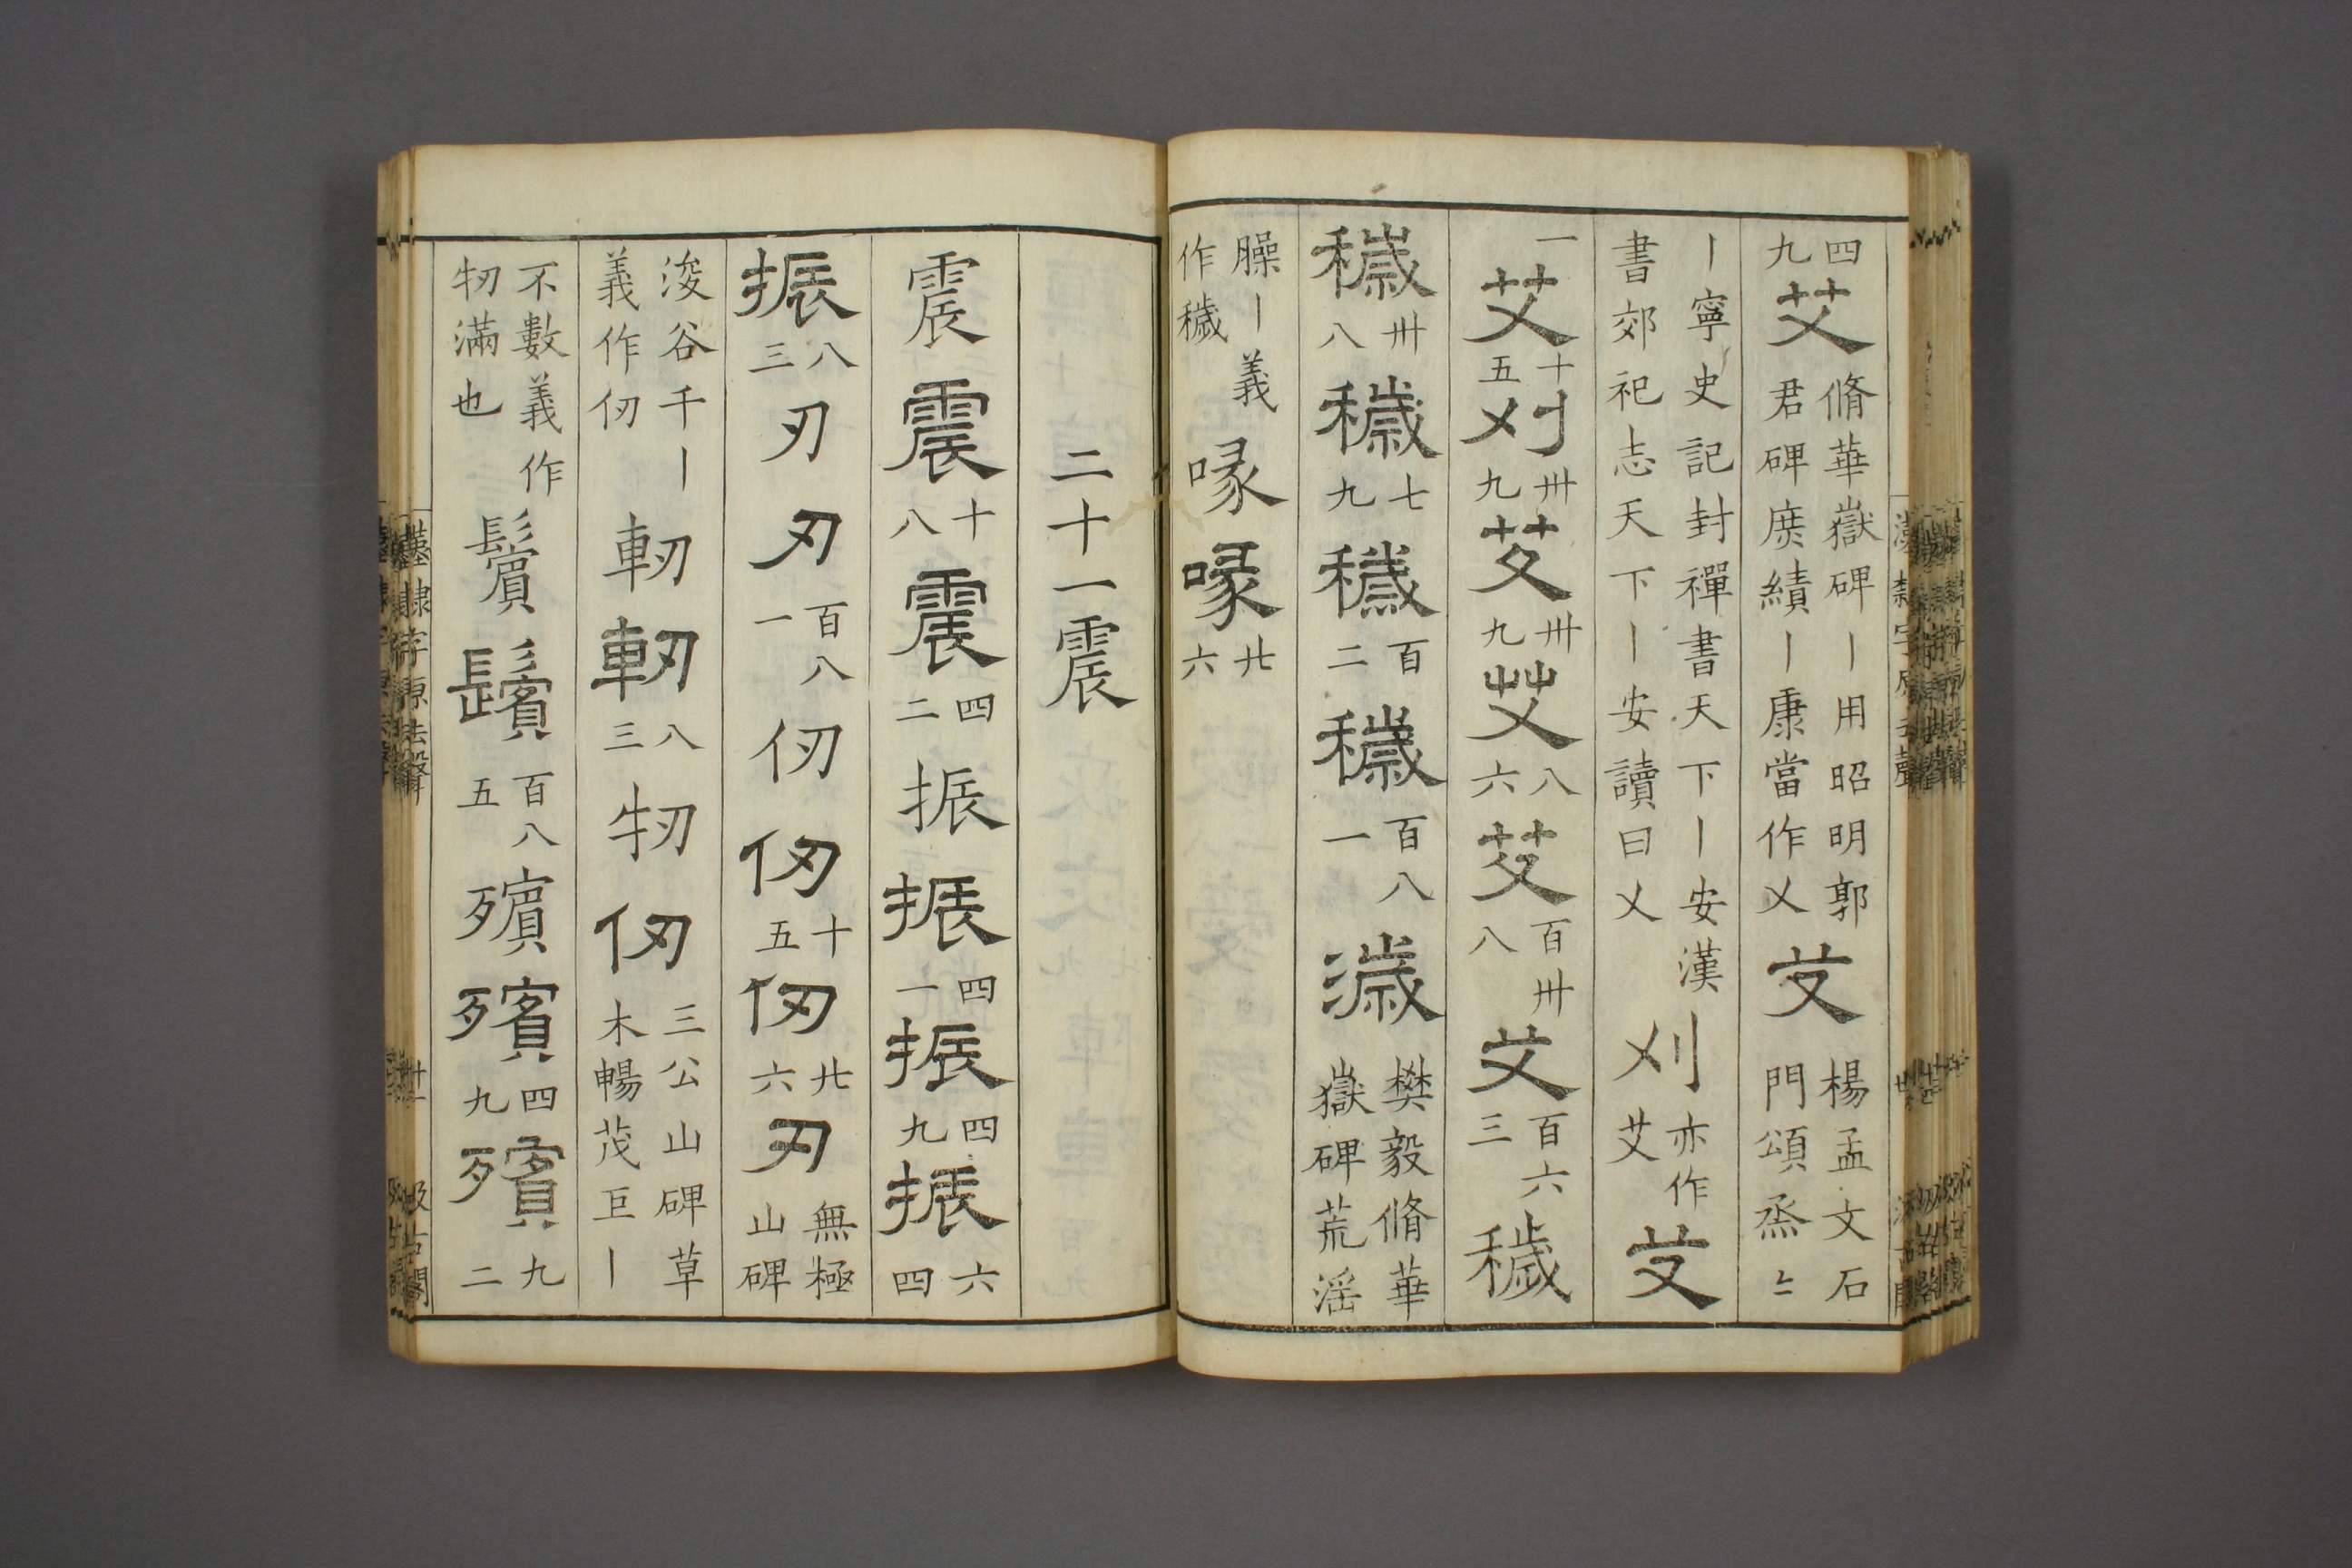 四九艾脩華嶽碑丨用昭明郭君碑庶績丨康當作乂艾楊孟文石門頌烝﹦
丨寧史記封禪書天下丨安漢書郊祀志天下丨安讀曰乂刈亦作艾艾
一艾十五刈卅九艾卅九艾八六艾百卅八艾百六三穢
穢卅八穢七九穢百二穢百八一濊樊毅脩華嶽碑荒淫
臊丨義作穢喙喙廿六
二十一震
震震十八震四二振振四一振四九振六四
振八三刃刃百八一仞仞十五仞廿六刃無極山碑
浚谷千丨義作仞軔軔八三牣仞三公山碑草木暢茂巨丨
不數義作牣滿也鬢鬢百八五殯殯四九殯九二
漢隸字原去聲
汲古閣